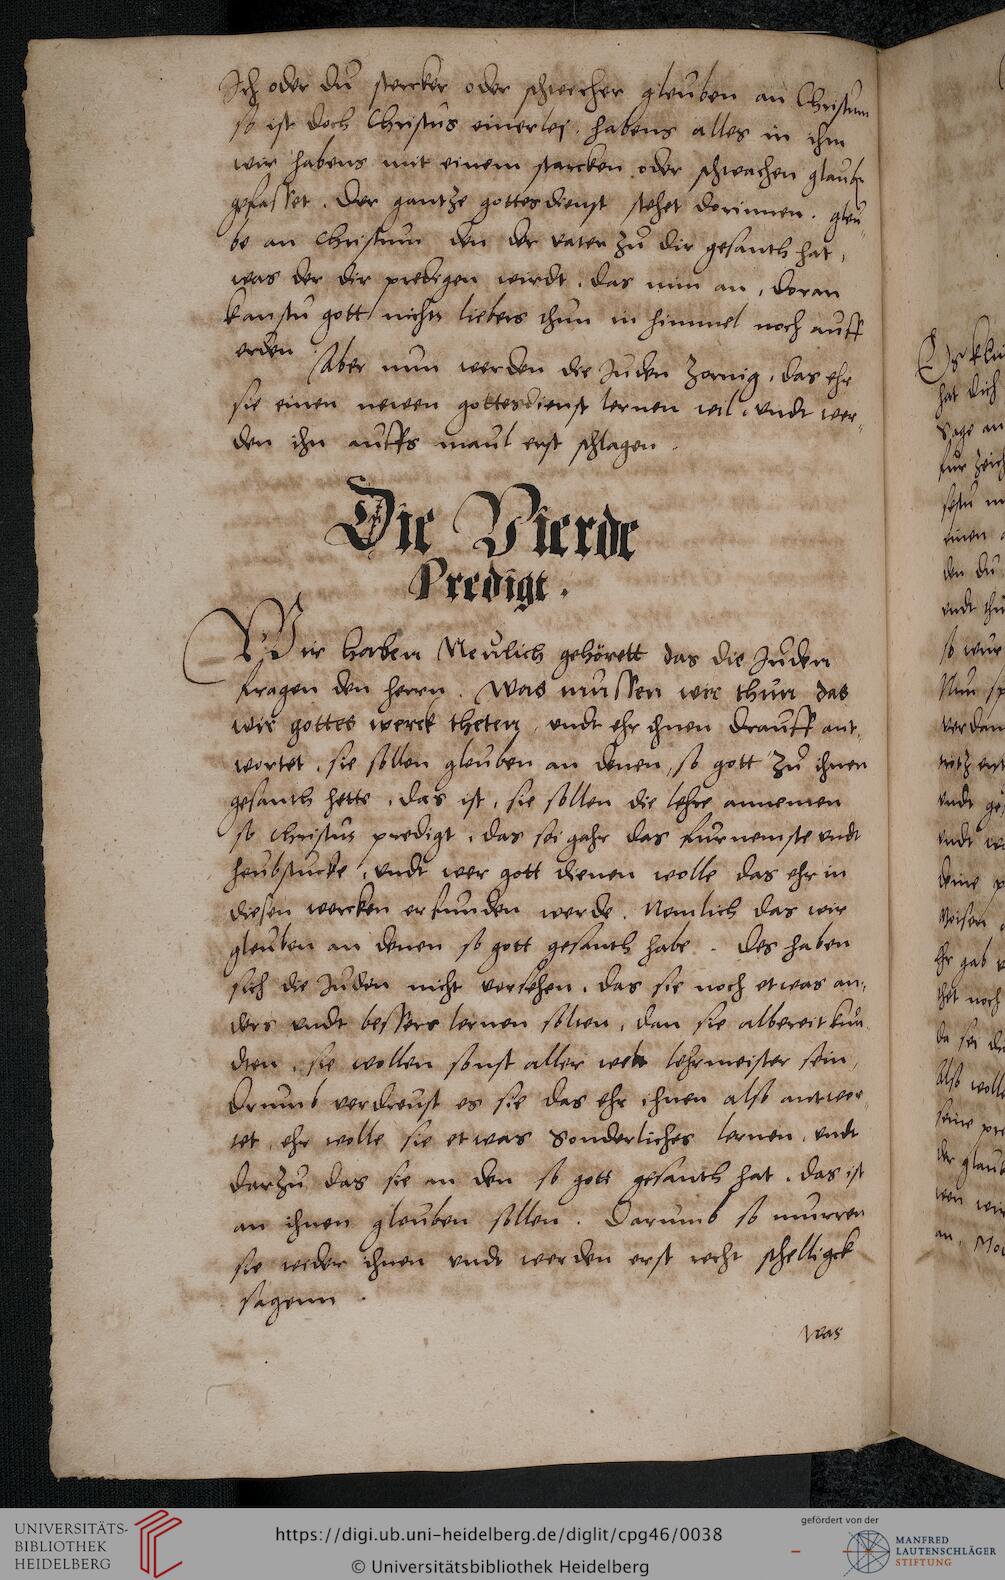 Ich oder du stercker oder schwecher gleuben an Christum
so ist doch Christus einerlej. habens alles in ihm
wir habens mit einem starcken oder schwachen glaube
gefasset. Der gantze gottesdienst stehet dorinnen. gleu-
be an Christum den der vater zu dir gesanth hat,
was der dir predigen wirdt. das nim an, doran
kanstu gott nichts liebers thun in himmel noch auff
erden Aber nun werden die Juden zornig, das ehr
sie einen newen gottesdienst lernen wil, undt wer-
den ihn auffs maul erst schlagen.
Die Vierde
Predigt.
Wir haben Neulich gehörett das die Juden
fragen den herrn. Was mussen wir thun das
wir gottes werck theten, undt ehr ihnen drauff ant-
wortet, sie sollen gleuben an denen, so gott zu ihnen
gesanth hette, das ist, sie sollen die lehre annemen
so Christus predigt, das sei gahr das furnemste undt
heubstucke, undt wer gott dienen wolle das ehr in
diesen wercken erfunden werde. Nemlich das wir
gleuben an denen so gott gesanth habe. Des haben
sich die Juden nicht versehen, das sie noch etwas an-
ders undt bessers lernen solten, dan sie albereit kun
dten, sie wollen sonst aller welt lehrmeister sein,
Drumb verdreust es sie das ehr ihnen also antwor-
tet, ehr wolle sie etwas sonderliches lernen, undt
darzu das sie an den so gott gesanth hat. das ist
an ihnen gleuben sollen. Darumb so murren
sie wider ihnen undt werden erst recht schelligck
sagenn.
was
hat dich
sage an
fur zeich
einen
den du
undt thu
so wur
Nun sp
verdam
undt
undt
seine
ehr gab
thet noch
da sei
also wolle
seine pre
der glaub
an. Mo
UNIVERSITÄTS-
BIBLIOTHEK
HEIDELBERG
https://digi.ub.uni-heidelberg.de/diglit/cpg46/0038
© Universitätsbibliothek Heidelberg
gefördert von der
MANFRED
LAUTENSCHLÄGER
STIFTUNG